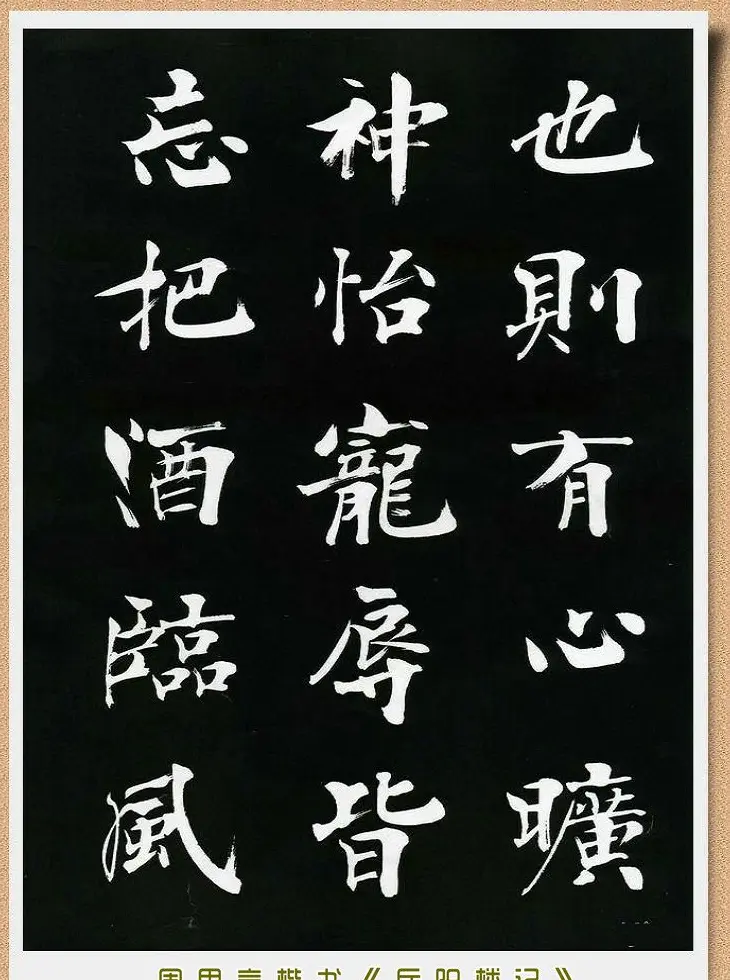 也則有心曠
神怡寵辱皆
忘把酒臨風
周思言楷书《岳阳楼记》